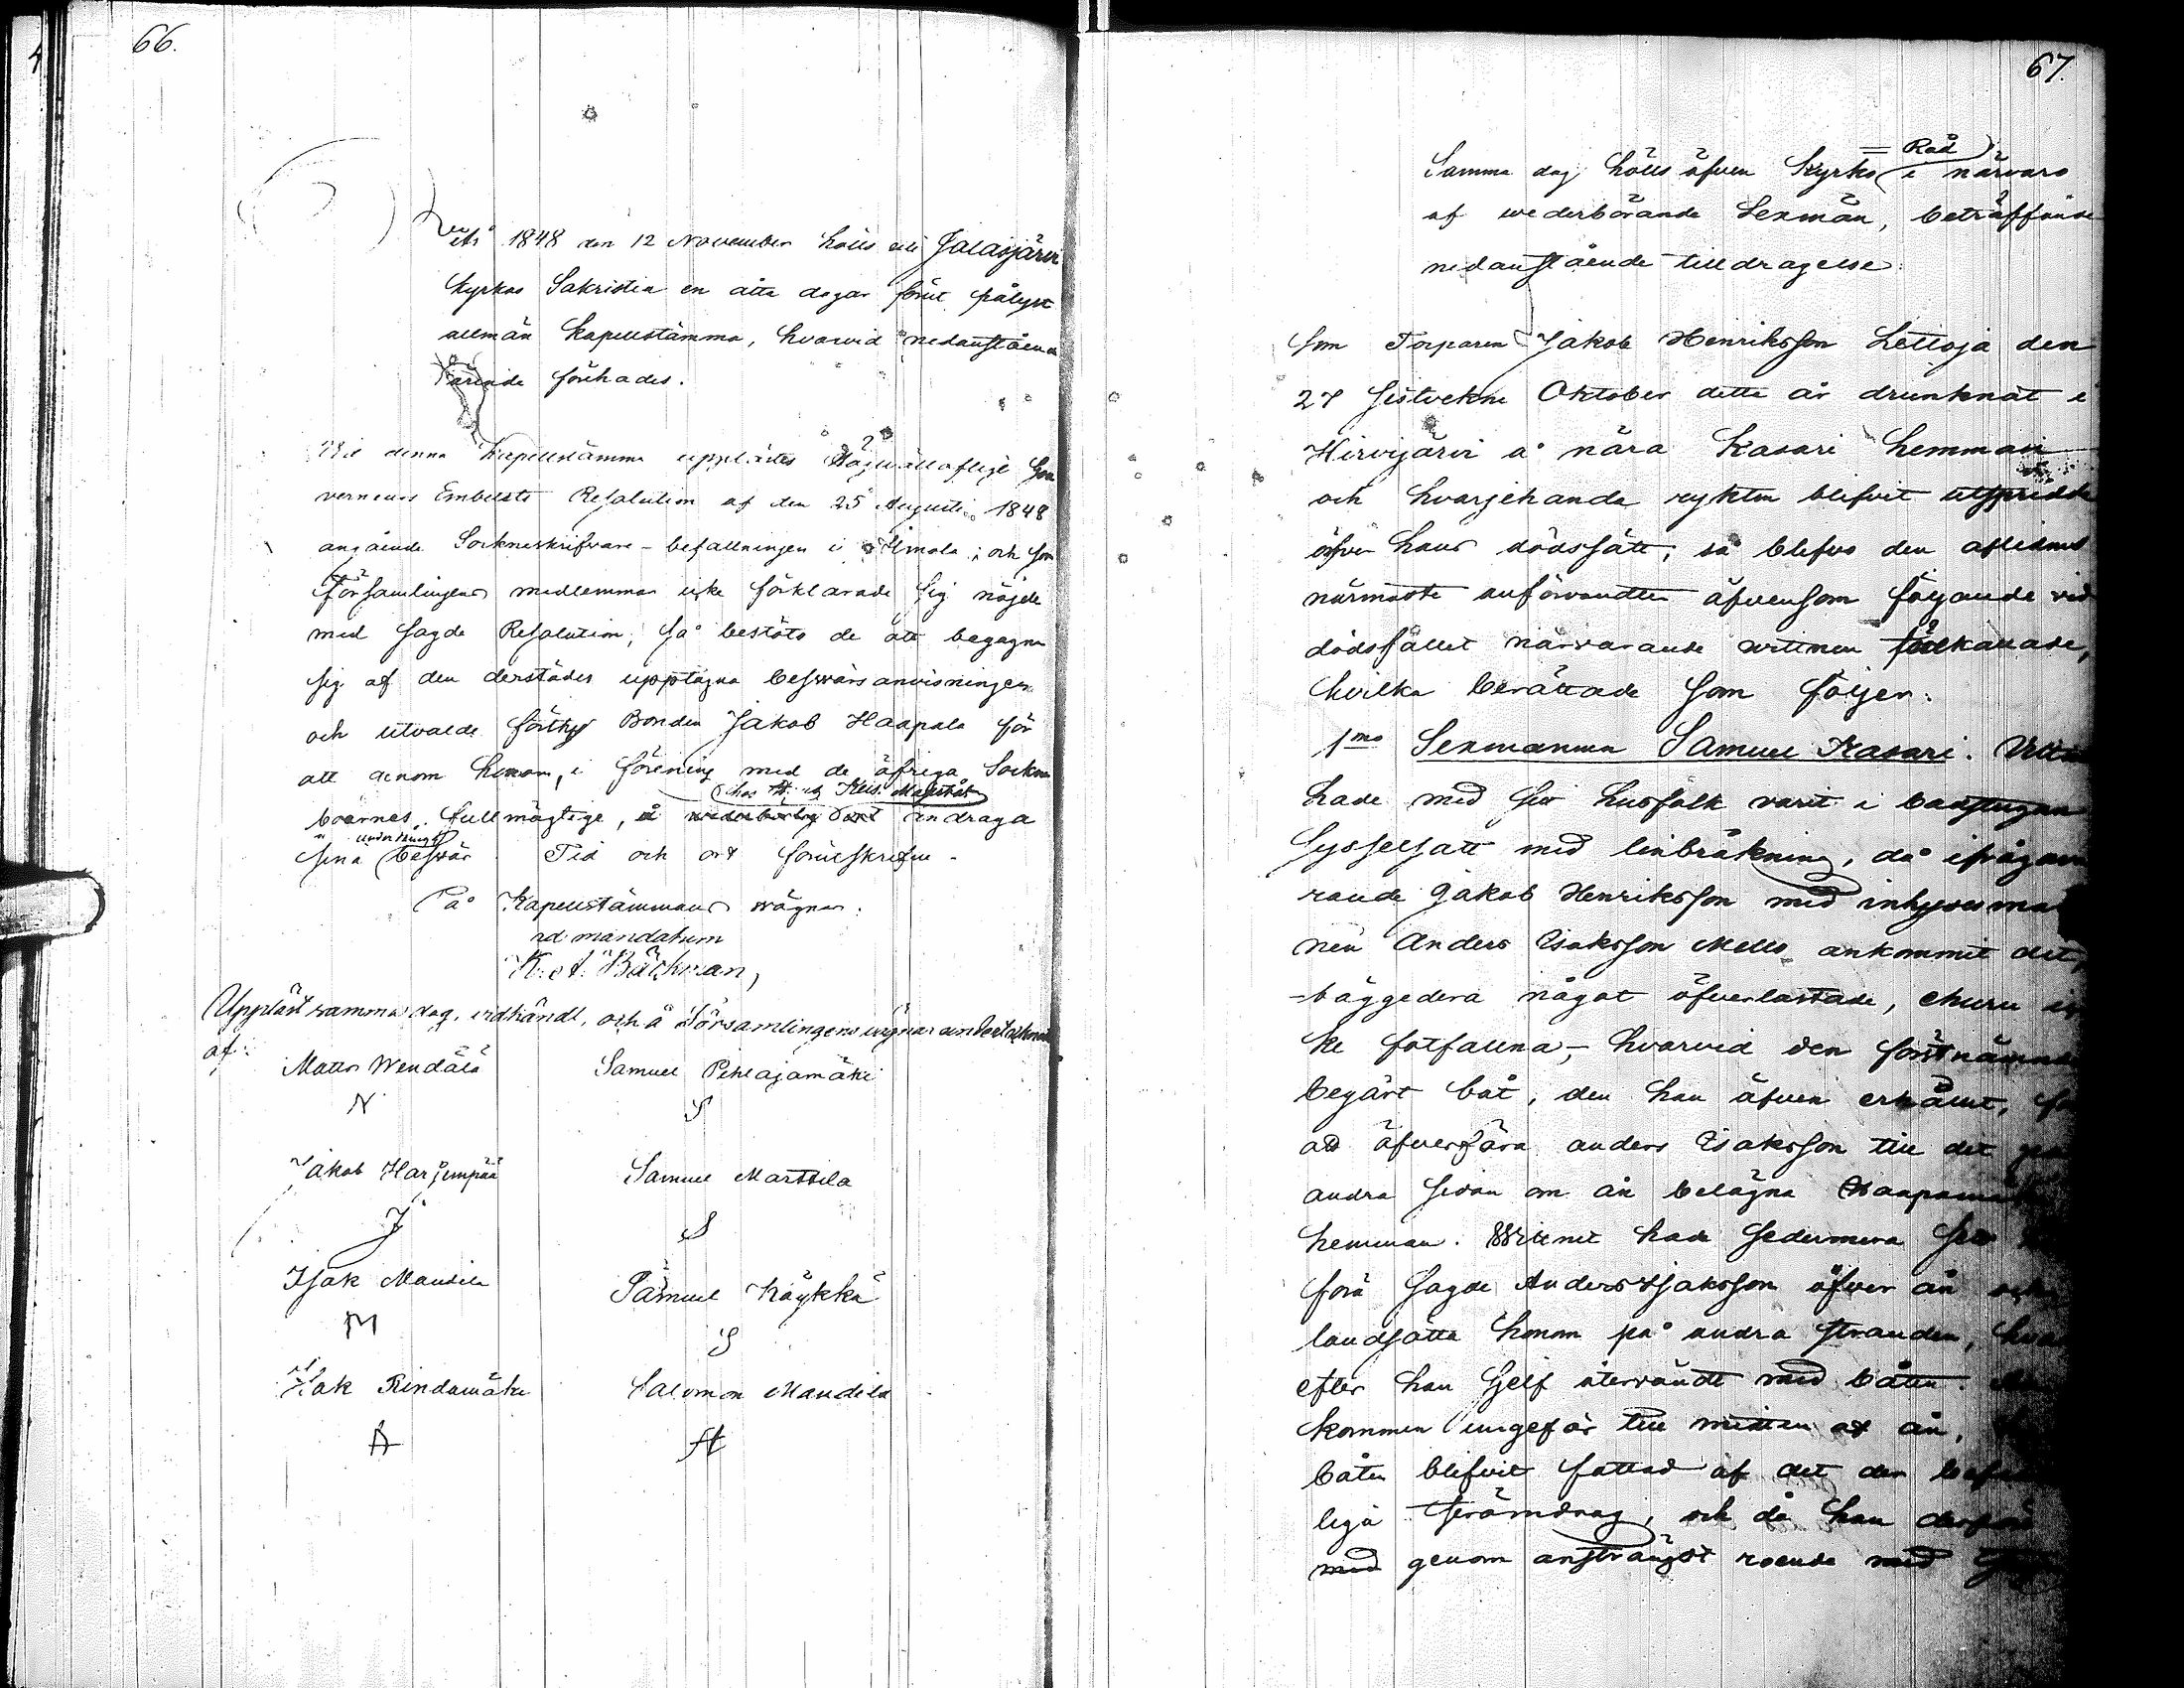 66.
År 1848 den 12 November hölls uti Jalasjärvi
kyrkas Sakristia en åtta dagar förut pålyst
allmän kapellstämma, hvarvid nedanstående
ärende förehades.
Vid denna Kapellstämma upplästes Högvälloflige Gou
verneurs Embetets Resolution af den 25 Augusti 1848
angående Sockneskrifvare-befattningen i Ilmola; och som
Församlingens medlemmar icke förklarade sig nöjde
med sagde Resolution, så beslöts de att begagna
sig af den derstädes upptagna besvärsanvisningen
och utvalde förthy Bonden Jakob Haapala för
att genom honom, i förening med de öfriga Sockne
hos H. K. Keis. Majestät
boernes fullmägtige, å wederbörlig ort andraga
underdåniga
sina besvär. Tid och ort förutskrefne.
På Kapellstämmans wägnar.
ad mandatum
K. A. Bäckman,
Uppläst samma dag, vidkändt, och å Församlingens vägnar undertecknadt
af:
Matts Wendälä Samuel Pihlajamäki
N S
Jakob Harjunpää Samuel Marttila
J S
Isak Mandila Samuel Köykkä
M S
Isak Rindamäki Salomon Mandila
A
67.
Råd
Samma dag hölls äfven Kyrko= i närvaro
af wederbörande Sexmän, beträffande
nedanstående tilldragelse:
Som Torparen Jakob Henriksson Lettoja den
27 sistvekne Oktober detta år drunknat i
Hirvijärvi å nära Kasari hemman
och hvarjehanda rykten blifvit utspridde
öfver hans dödssätt; så blefvo den aflidnes
närmaste anförvandter äfvensom följande vid
dödsfallet närvarande vittnen tillkallade,
hvilka berättade som följer:
1mo Sexmannen Samuel Kasari. Vittn
hade med sitt husfolk varit i badstugan
sysselsatt med linbråkning, då ifrågava
rande Jakob Henriksson med inhysesman
nen Anders Isaksson Mello ankommit dit,
=bäggedera något öfverlastade, ehuru ic
ke fotfallna,- hvarvid den förstnämnde
begärt båt, den han äfven erhållit, för
att öfverföra Anders Isaksson till det
andra sidan om ån belägna Haapamä
hemman. Wittnet hade sedermera sett
föra sagde Anders Isaksson öfver ån och
landsätta honom på andra stranden, hvar
efter han sjelf återvändt med båten.
kommen ungefär till midten af ån,
båten blifvit fattad af det der
liga strömdrag, och då han
med genom ansträngdt roende med